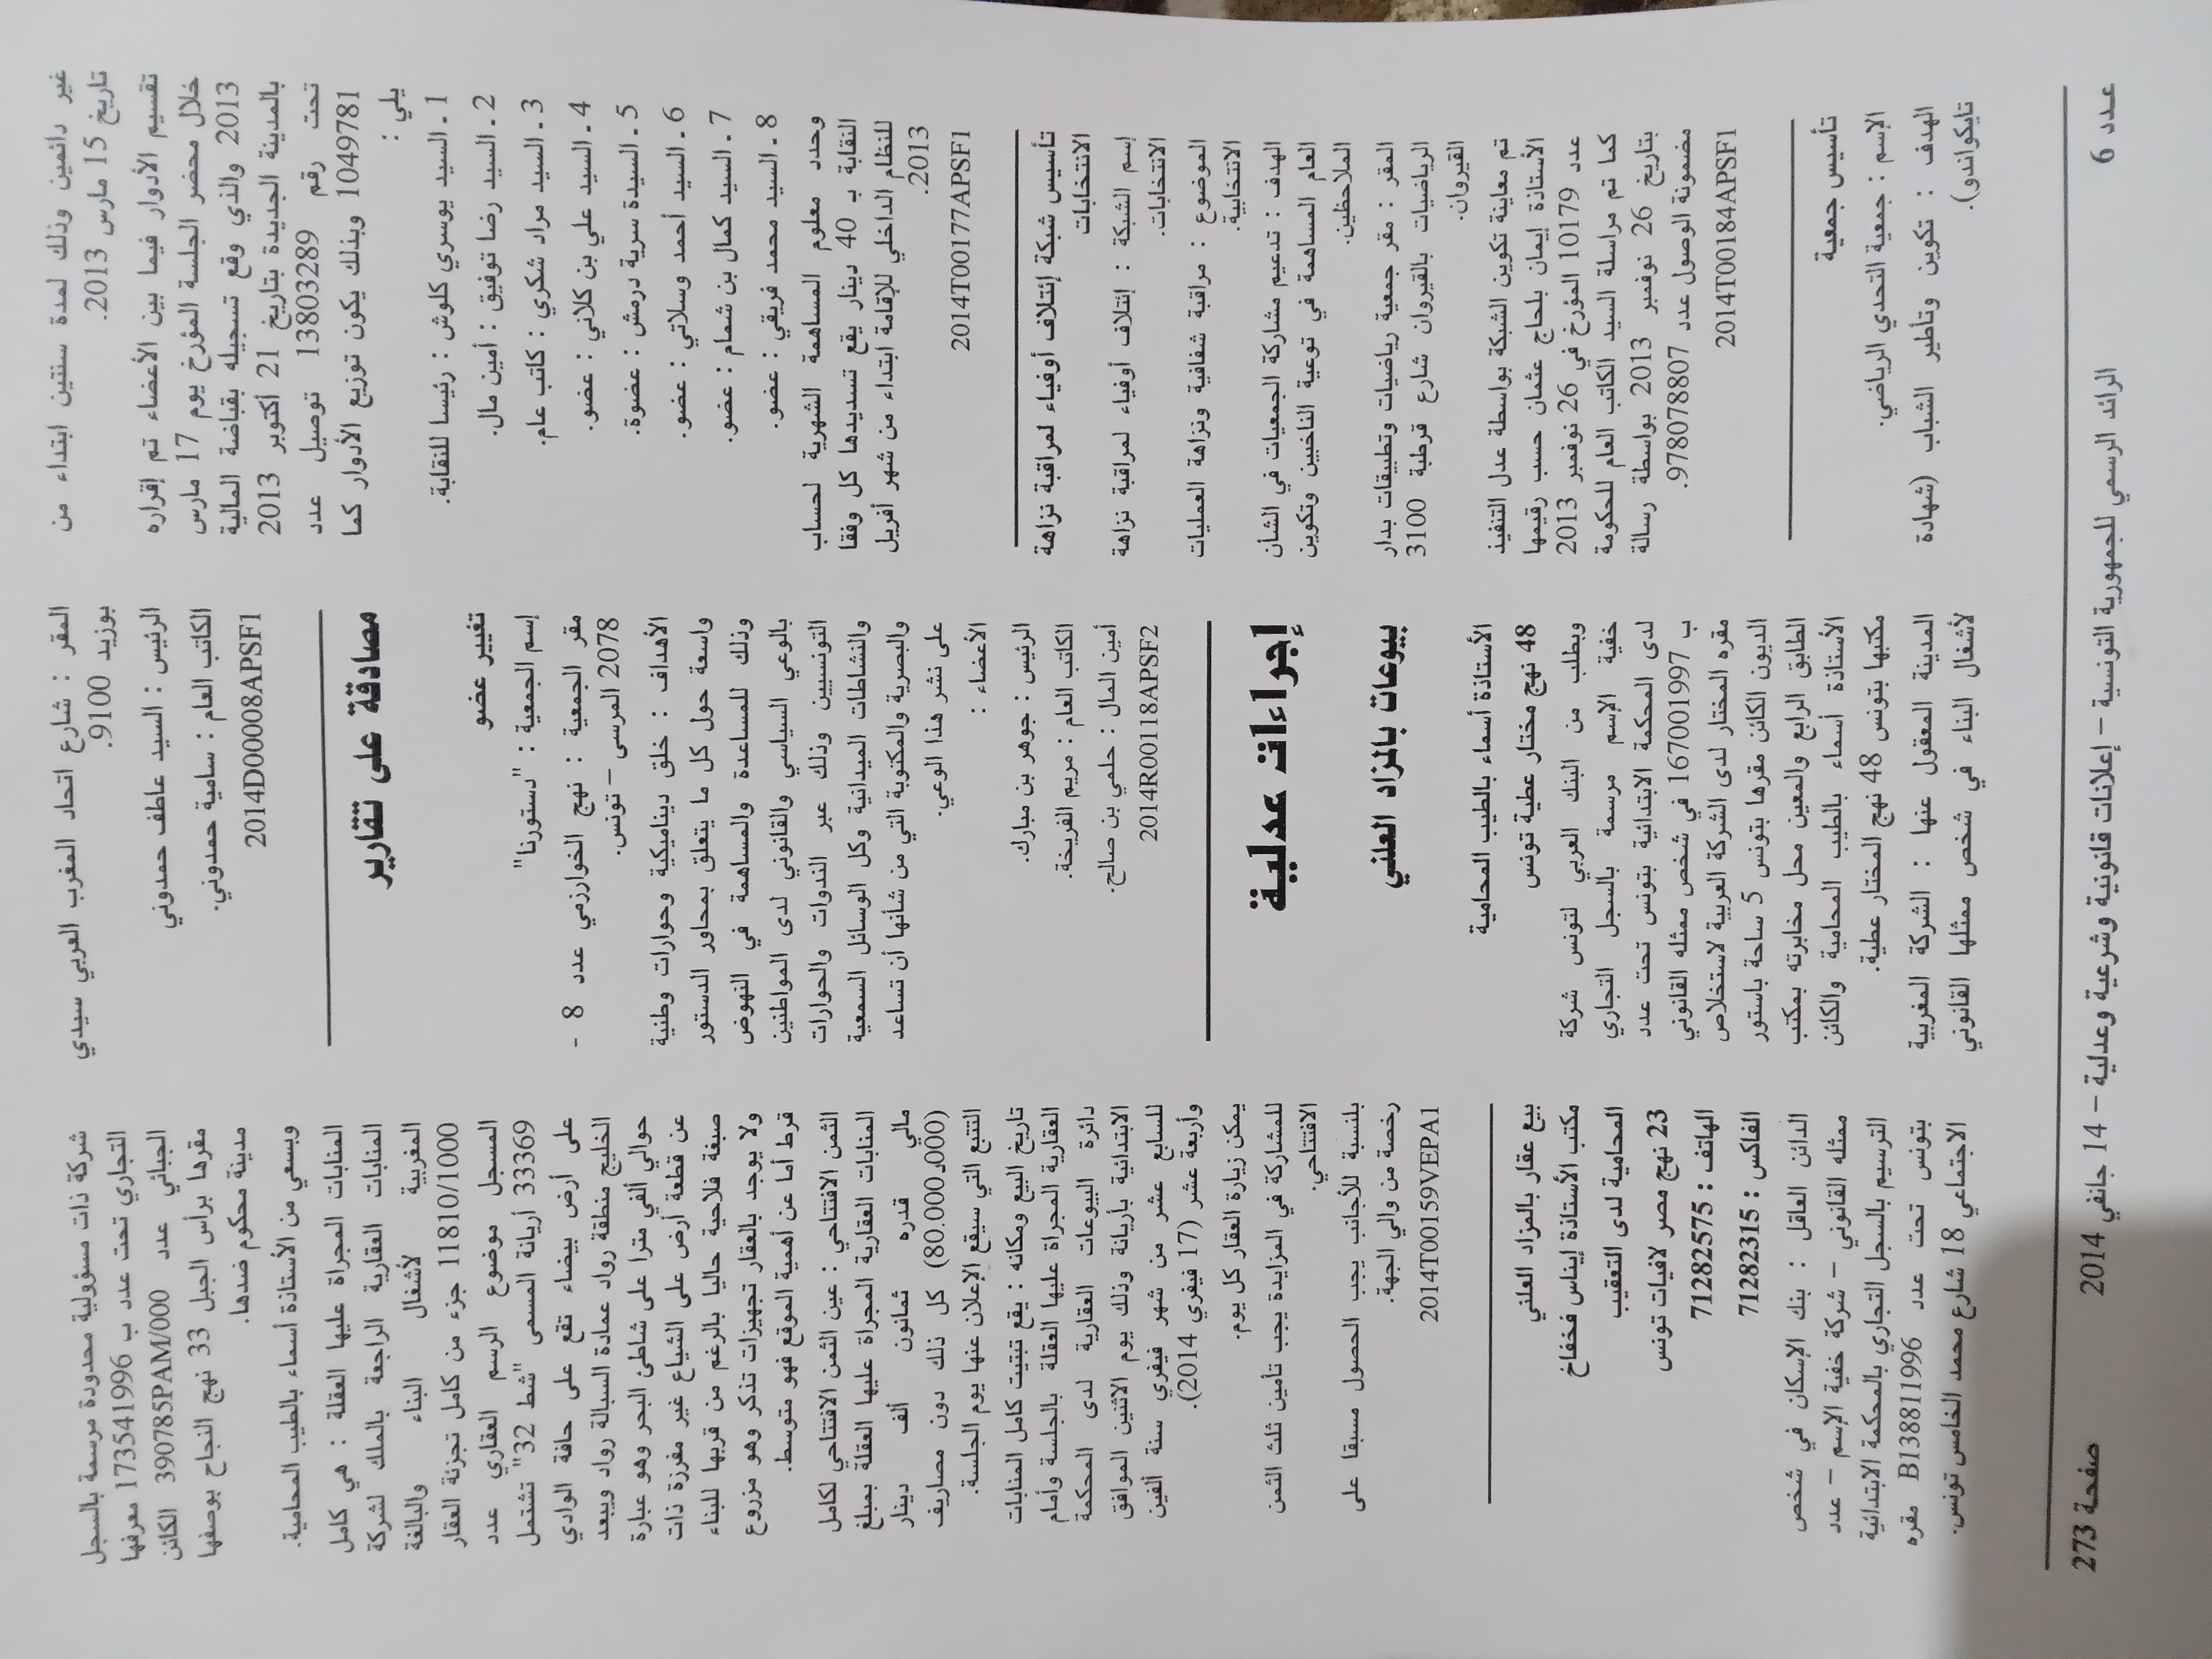 غير دائمين وذلك لمدة سنتين ابتداء من
تاريخ 15 مارس 2013.
تقسيم الأدوار فيما بين الأعضاء تم إقراره
خلال محضر الجلسة المؤرخ يوم 17 مارس
2013 والذي وقع تسجيله بقباضة المالية
بالمدينة الجديدة بتاريخ 21 أكتوبر 2013
تحت رقم 13803289 توصيل عدد
1049781 وبذلك يكون توزيع الأدوار كما
يلي :
1 ـ السيد يوسري كلوش : رئيسا للنقابة.
2 ـ السيد رضا توفيق : أمين مال.
3 ـ السيد مراد شكري : كاتب عام.
4 ـ السيد علي بن كلاني : عضو.
5 ـ السيدة سرية درمش : عضوة.
6 ـ السيد أحمد وسلاتي : عضو.
7 ـ السيد كمال بن شمام : عضو.
8 ـ السيد محمد فريقي : عضو.
وحدد معلوم المساهمة الشهرية لحساب
النقابة بـ 40 دينار يقع تسديدها كل وفقا
للنظام الداخلي للإقامة ابتداء من شهر أفريل
2013.
2014T00177APSF1
تأسيس شبكة إئتلاف أوفياء لمراقبة نزاهة
الانتخابات
إسم الشبكة : إئتلاف أوفياء لمراقبة نزاهة
الانتخابات.
الموضوع : مراقبة شفافية ونزاهة العمليات
الانتخابية.
الهدف : تدعيم مشاركة الجمعيات في الشأن
العام المساهمة في توعية الناخبين وتكوين
الملاحظين.
المقر : مقر جمعية رياضيات وتطبيقات بدار
الرياضيات بالقيروان شارع قرطبة 3100
القيروان.
تم معاينة تكوين الشبكة بواسطة عدل التنفيذ
الأستاذة إيمان بلحاج عثمان حسب رقيمها
عدد 10179 المؤرخ في 26 نوفمبر 2013
كما تم مراسلة السيد الكاتب العام للحكومة
بتاريخ 26 نوفمبر 2013 بواسطة رسالة
مضمونة الوصول عدد 978078807.
2014T00184APSF1
تأسيس جمعية
الإسم : جمعية التحدي الرياضي.
الهدف : تكوين وتاطير الشباب (شهادة
تايكواندو).
المقر : شارع اتحاد المغرب العربي سيدي
بوزيد 9100.
الرئيس : السيد عاطف حمدوني
الكاتب العام : سامية حمدوني.
2014D00008APSF1
مصادقة على تقارير
تغيير عضو
إسم الجمعية : "دستورنا"
مقر الجمعية : نهج الخوارزمي عدد 8 -
2078 المرسى – تونس.
الأهداف : خلق ديناميكية وحوارات وطنية
واسعة حول كل ما يتعلق بمحاور الدستور
وذلك للمساعدة والمساهمة في النهوض
بالوعي السياسي والقانوني لدى المواطنين
التونسيين وذلك عبر الندوات والحوارات
والنشاطات الميدانية وكل الوسائل السمعية
والبصرية والمكتوبة التي من شأنها أن تساعد
على نشر هذا الوعي.
الأعضاء :
الرئيس : جوهر بن مبارك.
الكاتب العام : مريم الفريخة.
أمين المال : حلمي بن صالح.
2014R00118APSF2
إجراءات عدلية
بيوعات بالمزاد العلني
الأستاذة أسماء بالطيب المحامية
48 نهج مختار عطية تونس
وبطلب من البنك العربي لتونس شركة
خفية الإسم مرسمة بالسجل التجاري
لدى المحكمة الابتدائية بتونس تحت عدد
ب 167001997 في شخص ممثله القانوني
مقره المختار لدى الشركة العربية لاستخلاص
الديون الكائن مقرها بتونس 5 ساحة باستور
الطابق الرابع والمعين محل مخابرته بمكتب
الأستاذة أسماء بالطيب المحامية والكائن
مكتبها بتونس 48 نهج المختار عطية.
المدينة المعقول عنها : الشركة المغربية
لأشغال البناء في شخص ممثلها القانوني
شركة ذات مسؤولية محدودة مرسمة بالسجل
التجاري تحت عدد ب 173541996 معرفها
الجبائي عدد 390785PAM/000 الكائن
مقرها برأس الجبل 33 نهج النجاح بوصفها
مدينة محكوم ضدها.
ويسعي من الأستاذة أسماء بالطيب المحامية.
المنابات المجراة عليها العقلة : هي كامل
المنابات العقارية الراجعة بالملك لشركة
المغربية لأشغال البناء والبالغة
11810/1000 جزء من كامل تجزئة العقار
المسجل موضوع الرسم العقاري عدد
33369 أريانة المسمى "شط 32" تشتمل
على أرض بيضاء تقع على حافة الوادي
الخليج منطقة رواد عمادة السبالة رواد ويبعد
حوالي ألفي مترا على شاطئ البحر وهو عبارة
عن قطعة أرض على الشياع غير مفرزة ذات
صبغة فلاحية حاليا بالرغم من قربها للبناء
ولا يوجد بالعقار تجهيزات تذكر وهو مزروع
قرط أما عن أهمية الموقع فهو متوسط.
الثمن الافتتاحي : عين الثمن الافتتاحي لكامل
المنابات العقارية المجراة عليها العقلة بمبلغ
مالي قدره ثمانون ألف دينار
(80.000د000) كل ذلك دون مصاريف
التتبع التي سيقع الإعلان عنها يوم الجلسة.
تاريخ البيع ومكانه : يقع تبتيت كامل المنابات
العقارية المجراة عليها العقلة بالجلسة وأمام
دائرة البيوعات العقارية لدى المحكمة
الابتدائية بأريانة وذلك يوم الاثنين الموافق
للسابع عشر من شهر فيفري سنة ألفين
وأربعة عشر (17 فيفري 2014).
يمكن زيارة العقار كل يوم.
للمشاركة في المزايدة يجب تأمين ثلث الثمن
الافتتاحي.
بلنسبة للأجانب يجب الحصول مسبقا على
رخصة من والي الجهة.
2014T00159VEPA1
بيع عقار بالمزاد العلني
مكتب الأستاذة إيناس فخفاخ
المحامية لدى التعقيب
23 نهج مصر لافيات تونس
الهاتف : 71282575
الفاكس : 71282315
الدائن العاقل : بنك الإسكان في شخص
ممثله القانوني – شركة خفية الإسم – عدد
الترسيم بالسجل التجاري بالمحكمة الابتدائية
بتونس تحت عدد B138811996 مقره
الاجتماعي 18 شارع محمد الخامس تونس.
عدد 6
الرائد الرسمي للجمهورية التونسية – إعلانات قانونية وشرعية وعدلية – 14 جانفي 2014
صفحة 273